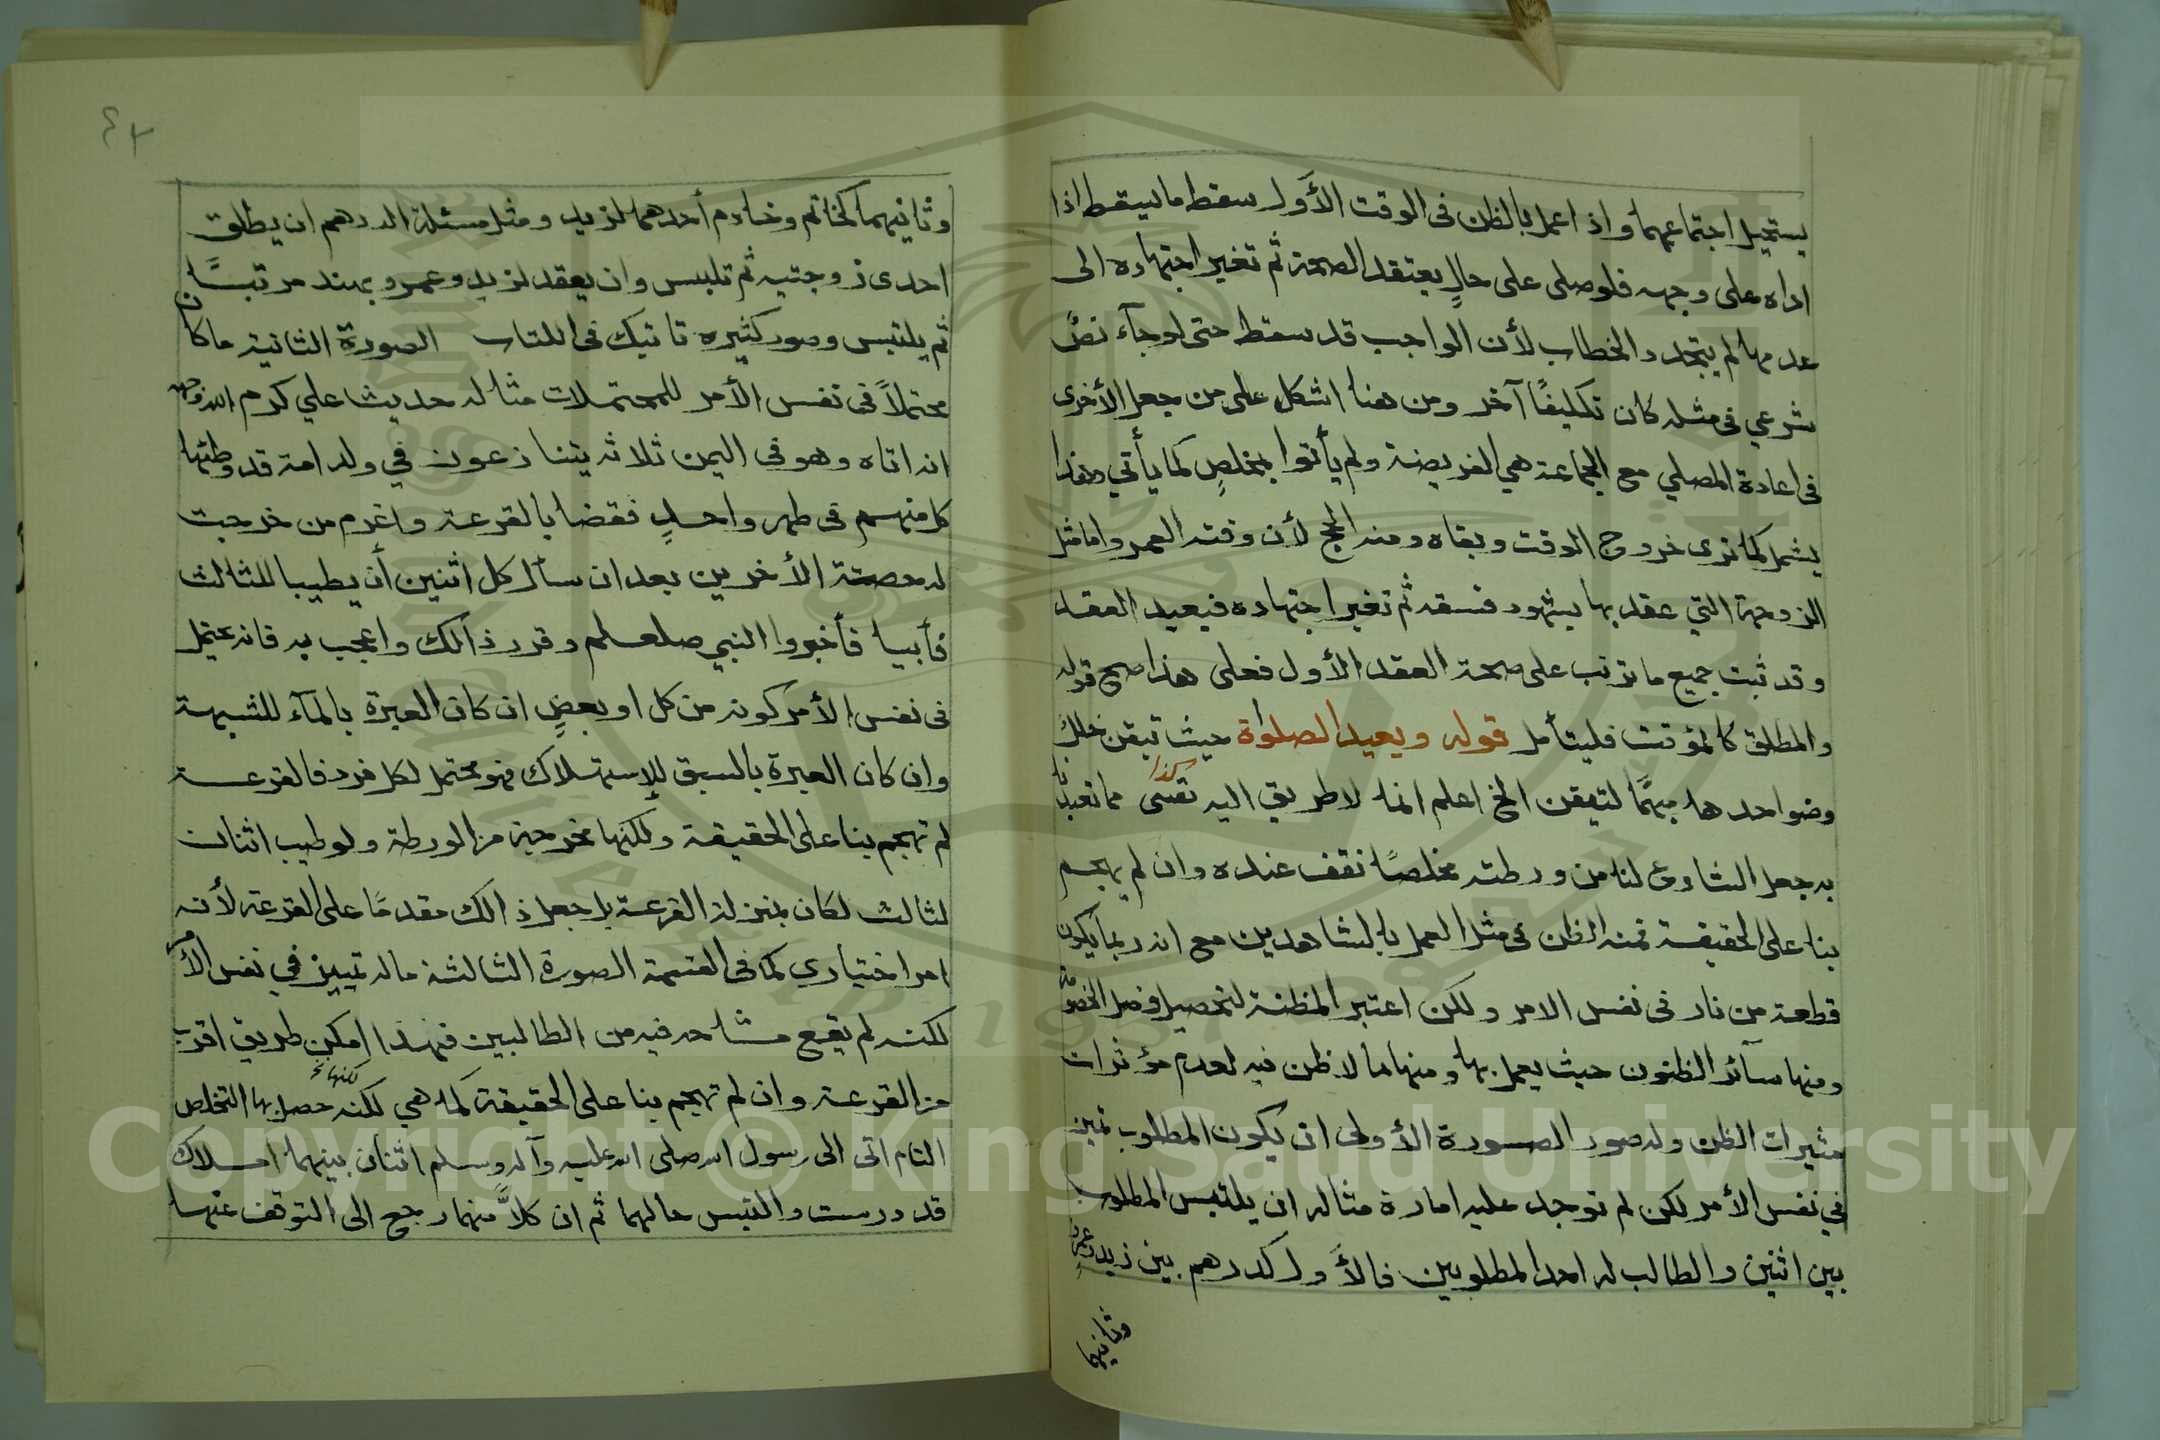 يستحيل اجتماعهما واذ اعمل بالظن فى الوقت الأول سقط ما يسقط اذا
اداه على وجهه فلو صلى على حالٍ يعتقد الصحة ثم تغير اجتهاده الى
عدمها لم يتجدد الخطاب لأن الواجب قد سقط حتى لو جآء نصٌ
شرعي فى مثله كان تكليفًا آخر ومن هنا اشكل على من جعل الأخرى
فى اعادة المصلي مع الجماعة هي الفريضة ولم يأتوا بمخلصٍ كما يأتي وهذا
يشمل كما ترى خروج الوقت وبقاه ومنه الحج لأن وقته العمر واما مثل
الزوجة التي عقد بها بشهود فسقه ثم تغير اجتهاده فيعيد العقد
وقد ثبت جميع ما ترتب على صحة العقد الأول فعلى هذا صح قوله
والمطلق كالمؤقت فليتأمل قوله ويعيد الصلوة حيث تيقن خلل
وضو احدها مبهمًا لتيقن الخ اعلم انما لا طريق اليه نفسى مما تعبدنا
كذا
به جعل الشارع لنا من ورطته مخلصًا نقف عنده وان لم يهجم
بنا على الحقيقة فمنه الظن فى مثل العمل بالشاهدين مع انه ربما يكون
قطعة من نار فى نفس الامر ولكن اعتبر المظنة لتحصيل فصل الخصومة
ومنها سآئر الظنون حيث يعمل بها ومنها ما لا ظن فيه لعدم مؤثرات
مثيرات الظن وله صور الصورة الأولى ان يكون المطلوب تميز
في نفس الأمر لكن لم توجد عليه امارة مثاله ان يلتبس المطلوب
بين اثنين والطالب له احد المطلوبين فالأول كدرهم بين زيد وعمرو
وثانيهما
٤٣
وثانيهما كخاتم وخادم أحدهما لزيد ومثل مسئلة الدرهم ان يطلق
احدى زوجتيه ثم تلبس وان يعقد لزيد وعمرو بهند مرتبًا
ثم يلتبس وصور كثيره تاتيك فى الكتاب الصورة الثانية ما كان
محتملاً فى نفس الأمر للمحتملات مثاله حديث علي كرم الله وجهه
انه اتاه وهو فى اليمن ثلاثة يتنازعون في ولد امة قد وطئها
كل منهم فى طهر واحدٍ فقضا بالقرعة واغرم من خرجت
له حصة الأخرين بعد ان سأل كل اثنين أن يطيبا للثالث
فأبيا فأخبروا النبي صلعلم وقرر ذالك واعجب به فانه يحتمل
فى نفس الأمر كونه من كل او بعضٍ ان كان العبرة بالمآء للشبهة
وان كان العبرة بالسبق للإستهلاك فهو محتمل لكل فرد فالقرعة
لم تهجم بنا على الحقيقة ولكنها مخرجة من الورطة ولو طيب اثنان
لثالث لكان بمنزلة القرعة بل جعل ذالك مقدمًا على القرعة لأنه
امر اختياري كما فى القسمة الصورة الثالثة ماله تمييز في نفس الأمر
لكنه لم يقع مشاحه فيه من الطالبين فهذا امكن طريق اقرب
من القرعة وان لم تهجم بنا على الحقيقة كما هي لكنه حصل بها التخلص
لكنها نخ
التام اتى الى رسول الله صلى الله عليه وآله وسلم اثنان بينهما املاك
قد درست والتبس حالهما ثم ان كلاًّ منهما رجع الى التوقف عنها
Copyright © King Saud University